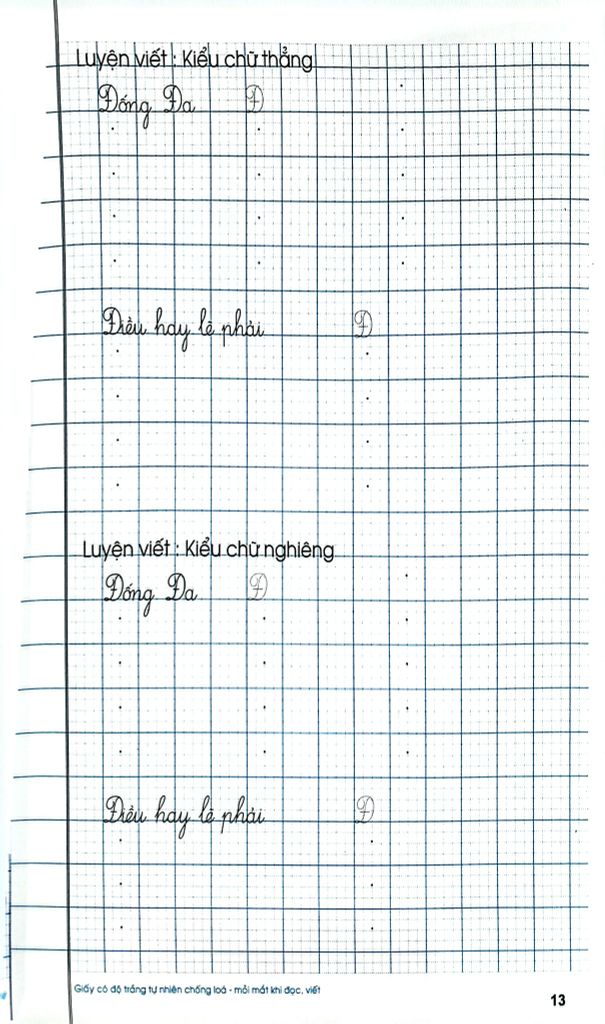 Luyện viết : Kiểu chữ thẳng
Đống Đa Đ
Điều hay lẽ phải Đ
Luyện viết : Kiểu chữ nghiêng
Đống Đa Đ
Điều hay lẽ phải Đ
Giấy có độ trắng tự nhiên chống loá - mỏi mắt khi đọc, viết
13